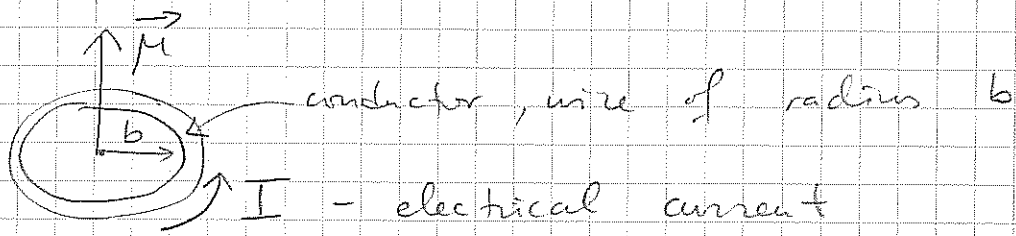 μ⃗
conductor, wire of radius b
b
I - electrical current